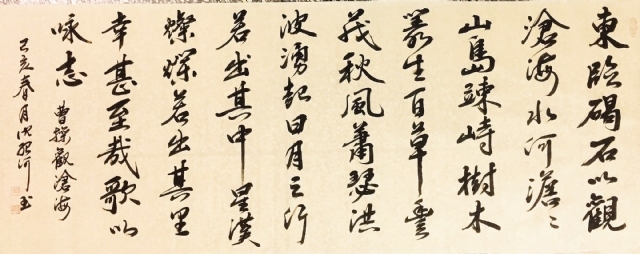 東臨碣石以觀
滄海水何澹〻
山島竦峙樹木
叢生百草豐
茂秋風蕭瑟洪
波湧起日月之行
若出其中星漢
燦爛若出其里
幸甚至哉歌以
咏志
曹操觀滄海
己亥春月河書